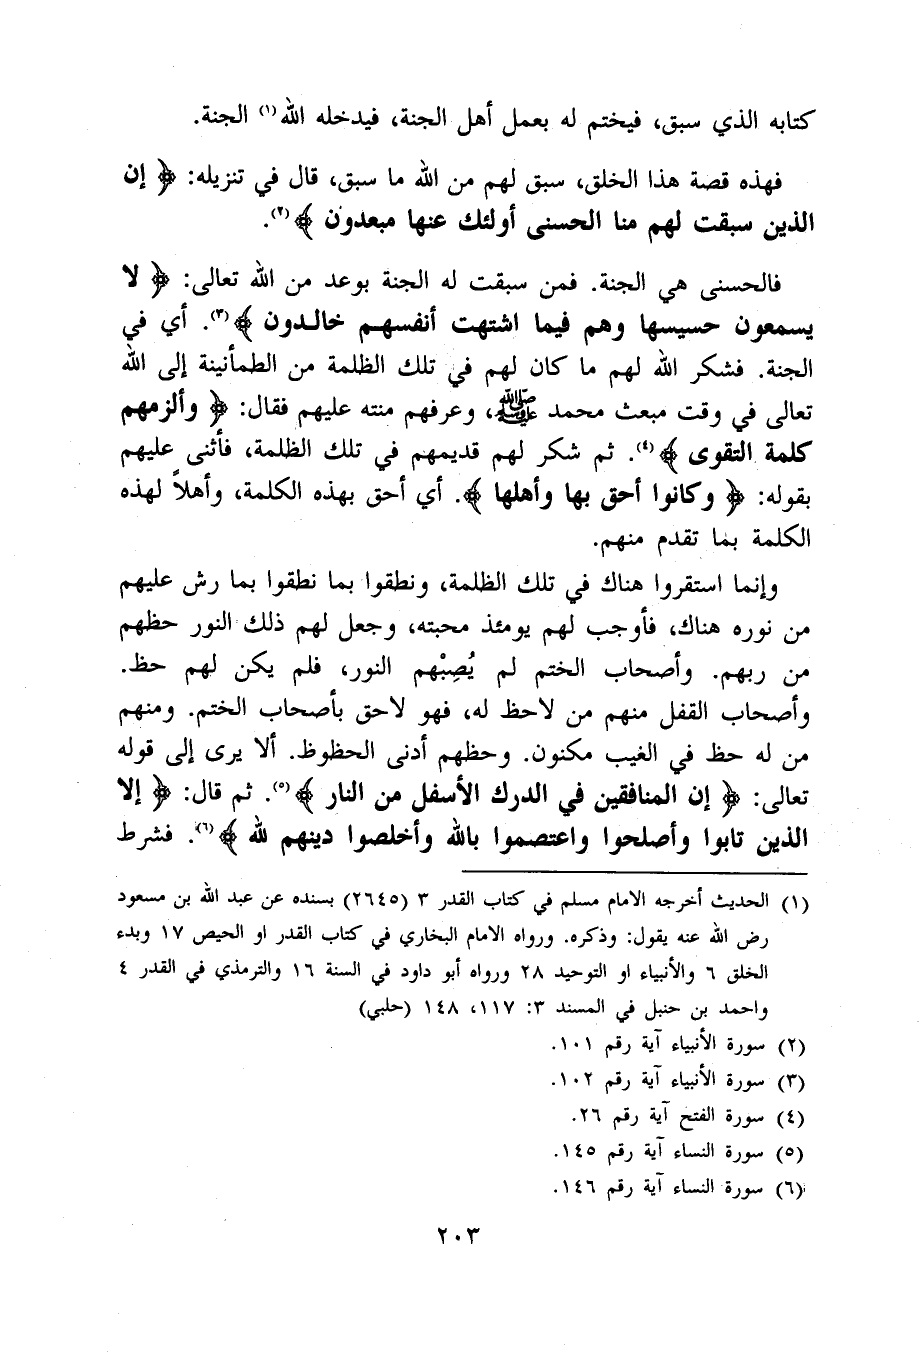 كتابه الذي سبق، فيختم له بعمل أهل الجنة، فيدخله الله(١) الجنة.
فهذه قصة هذا الخلق، سبق لهم من الله ما سبق، قال في تنزيله: ﴿ إن
الذين سبقت لهم منا الحسنى أولئك عنها مبعدون ﴾(٢).
فالحسنى هي الجنة. فمن سبقت له الجنة بوعد من الله تعالى: ﴿ لا
يسمعون حسيسها وهم فيما اشتهت أنفسهم خالدون ﴾(٣). أي في
الجنة. فشكر الله لهم ما كان لهم في تلك الظلمة من الطمأنينة إلى الله
تعالى في وقت مبعث محمد ﷺ، وعرفهم منته عليهم فقال: ﴿ وألزمهم
كلمة التقوى ﴾(٤). ثم شكر لهم قديمهم في تلك الظلمة، فأثنى عليهم
بقوله: ﴿ وكانوا أحق بها وأهلها ﴾. أي أحق بهذه الكلمة، وأهلاً لهذه
الكلمة بما تقدم منهم.
وإنما استقروا هناك في تلك الظلمة، ونطقوا بما نطقوا بما رش عليهم
من نوره هناك، فأوجب لهم يومئذ محبته، وجعل لهم ذلك النور حظهم
من ربهم. وأصحاب الختم لم يُصِبْهم النور، فلم يكن لهم حظ.
وأصحاب القفل منهم من لاحظ له، فهو لاحق بأصحاب الختم. ومنهم
من له حظ في الغيب مكنون. وحظهم أدنى الحظوظ. ألا يرى إلى قوله
تعالى: ﴿ إن المنافقين في الدرك الأسفل من النار ﴾(٥). ثم قال: ﴿ إلا
الذين تابوا وأصلحوا واعتصموا بالله وأخلصوا دينهم لله ﴾(٦). فشرط
(١) الحديث أخرجه الامام مسلم في كتاب القدر ٣ (٢٦٤٥) بسنده عن عبد الله بن مسعود
رض الله عنه يقول: وذكره. ورواه الامام البخاري في كتاب القدر او الحيص ١٧ وبدء
الخلق ٦ والأنبياء او التوحيد ٢٨ ورواه أبو داود في السنة ١٦ والترمذي في القدر ٤
واحمد بن حنبل في المسند ٣: ١١٧، ١٤٨ (حلبي)
(٢) سورة الأنبياء آية رقم ١٠١.
(٣) سورة الأنبياء آية رقم ١٠٢.
(٤) سورة الفتح آية رقم ٢٦.
(٥) سورة النساء آية رقم ١٤٥.
(٦) سورة النساء آية رقم ١٤٦.
٢٠٣